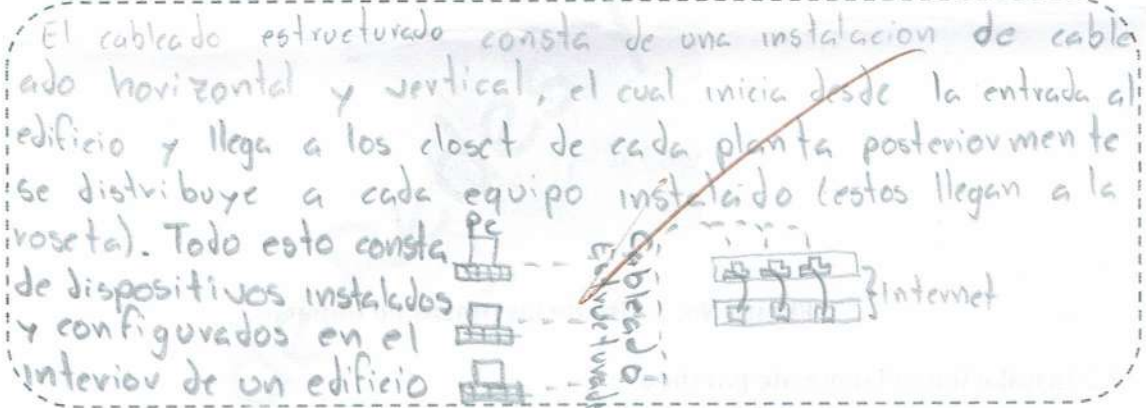 El cableado estructurado consta de una instalacion de cable
ado horizontal y vertical, el cual inicia desde la entrada all
edificio y llega a los closet de cada planta posteriormente
se distribuye a cada equipo instalaido (estos llegan a la
roseta). Todo esto consta
de dispositivos instalados
y configurados en el
interior de un edificio
PC
Cableado
Estructurado
Internet